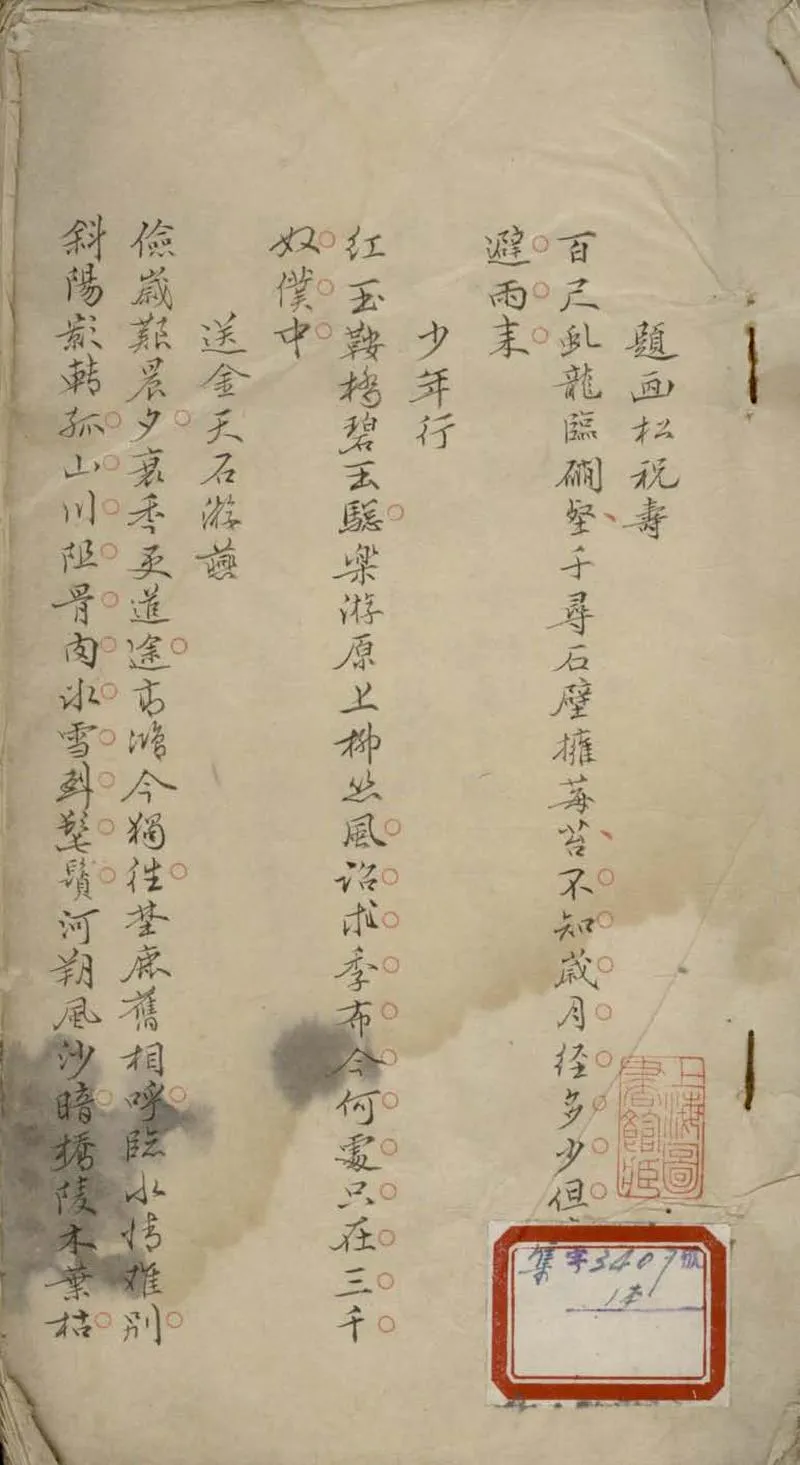 題画松祝壽
百尺虬龍臨磵壑千尋石壁擁莓苔不知歲月径多少但
避雨来
少年行
红玉鞍橋碧玉驄樂游原上柳丝風诏求季布今何處只在三千
奴僕中
送金天石游燕
儉歲艱晨夕衰季更道途市滄今獨往埜鹿舊相呼臨水情難别
斜陽影轉孤山川阻骨肉冰雪到髦鬚河朔風沙暗橋陵木葉枯
上海圖書館藏
集字3407號
1本